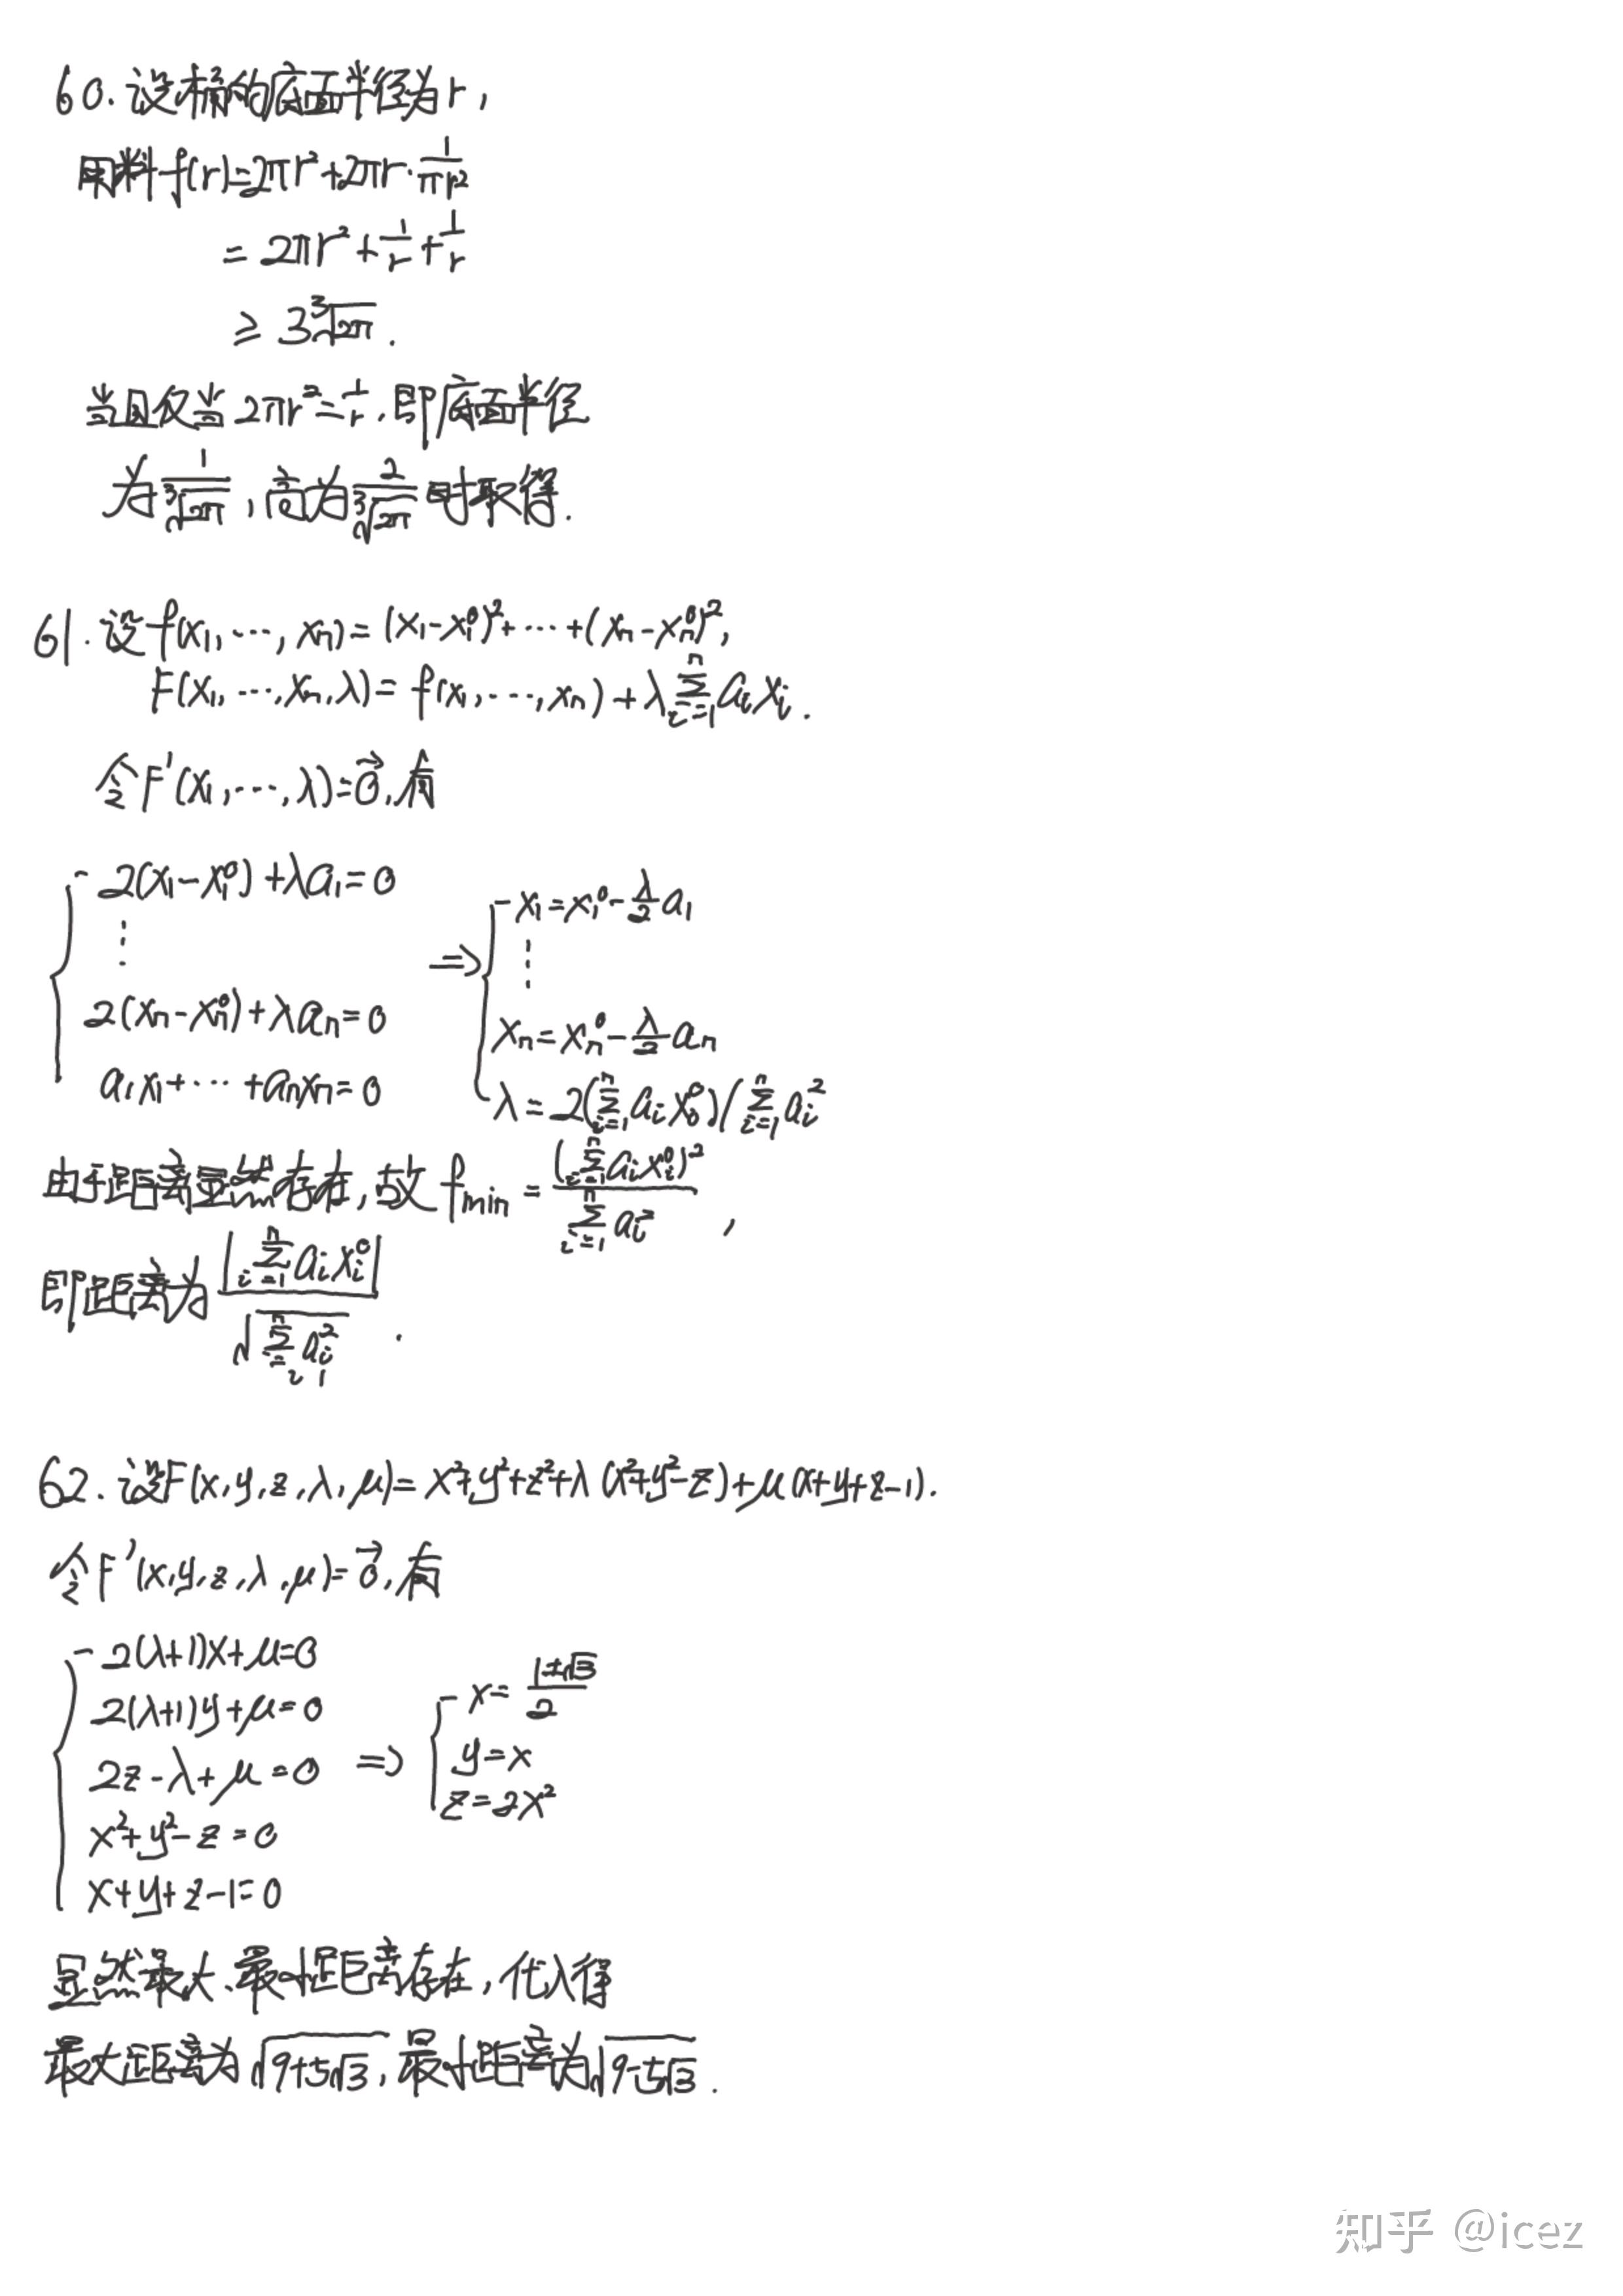 60. 设桶的底面半径为r,
用料f(r)=2πr²+2πr·1/(πr²)
=2πr²+1/r+1/r
≥3∛(2π).
当且仅当2πr²=1/r,即底面半径
为1/∛(2π),高为2/∛(2π)时取得.
61. 设f(x₁,…,xₙ)=(x₁-x₁⁰)²+…+(xₙ-xₙ⁰)²,
F(x₁,…,xₙ,λ)=f(x₁,…,xₙ)+λ∑ᵢ₌₁ⁿaᵢxᵢ.
令F'(x₁,…,λ)=0⃗,有
{2(x₁-x₁⁰)+λa₁=0
⋮
2(xₙ-xₙ⁰)+λaₙ=0
a₁x₁+…+aₙxₙ=0
⇒{x₁=x₁⁰-(λ/2)a₁
⋮
xₙ=xₙ⁰-(λ/2)aₙ
λ=2(∑ᵢ₌₁ⁿaᵢxᵢ⁰)/∑ᵢ₌₁ⁿaᵢ²
由于距离显然存在,故fmin=(∑ᵢ₌₁ⁿaᵢxᵢ⁰)²/∑ᵢ₌₁ⁿaᵢ²,
即距离为|∑ᵢ₌₁ⁿaᵢxᵢ⁰|/√(∑ᵢ₌₁ⁿaᵢ²).
62. 设F(x,y,z,λ,μ)=x²+y²+z²+λ(x²+y²-z)+μ(x+y+z-1).
令F'(x,y,z,λ,μ)=0⃗,有
{2(λ+1)x+μ=0
2(λ+1)y+μ=0
2z-λ+μ=0
x²+y²-z=0
x+y+z-1=0
⇒{x=(1±√3)/2
y=x
z=2x²
显然最大、最小距离存在,代入得
最大距离为√(9+5√3),最小距离为√(9-5√3).
知乎 @icez